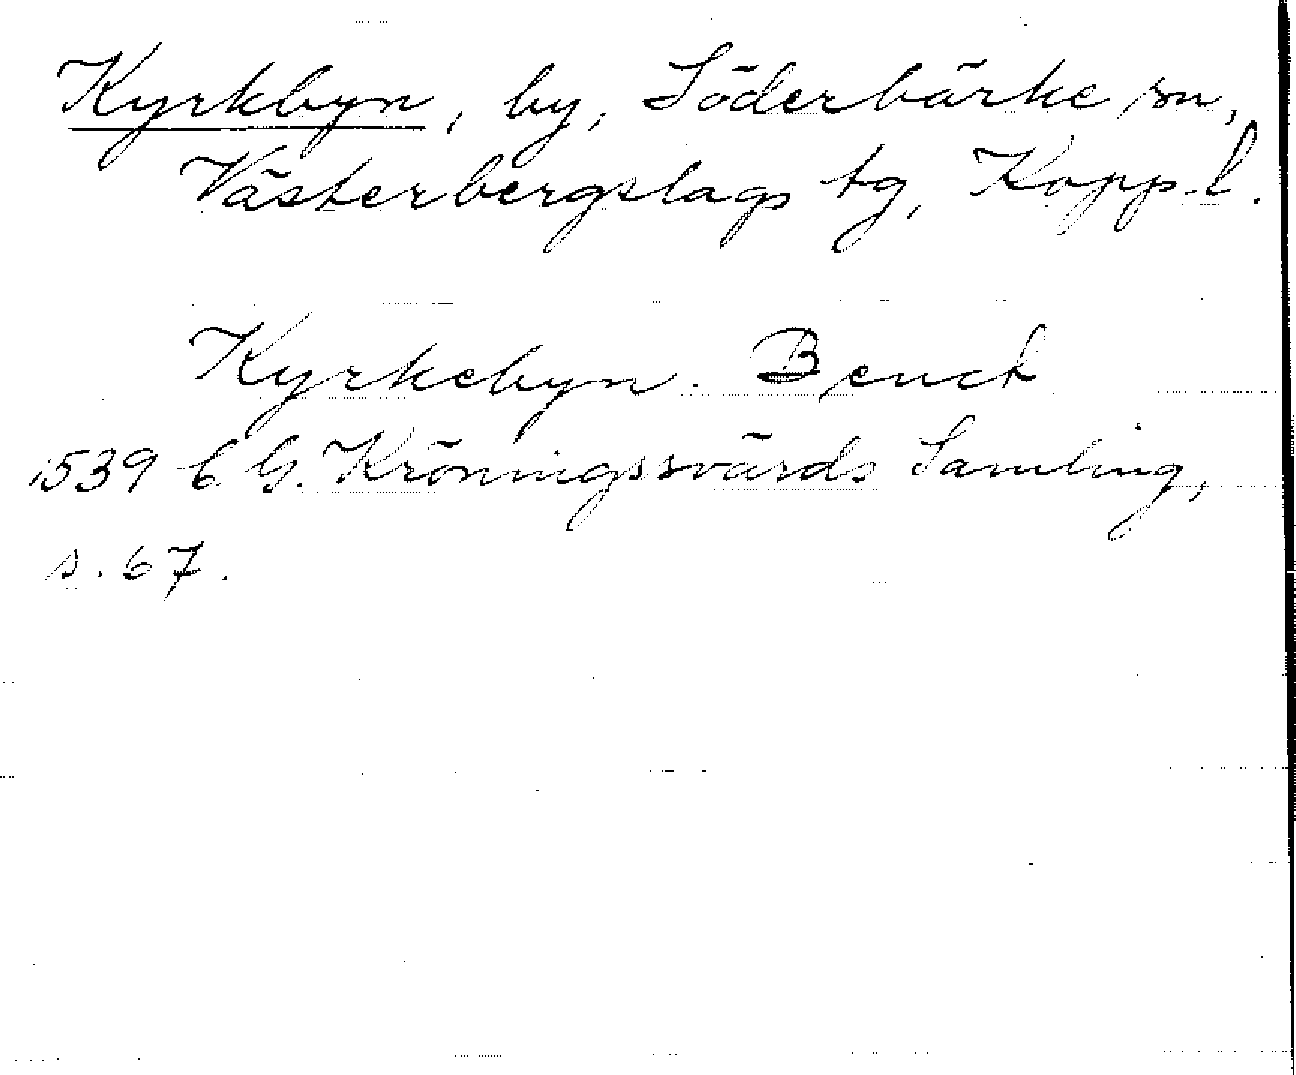 Kyrkbyn, by, Söderbärke sn,
Västerbergslags tg, Kopp.l.
Kyrkebyn. Benct
1539 C. G. Kröningssvärds Samling,
s. 67.